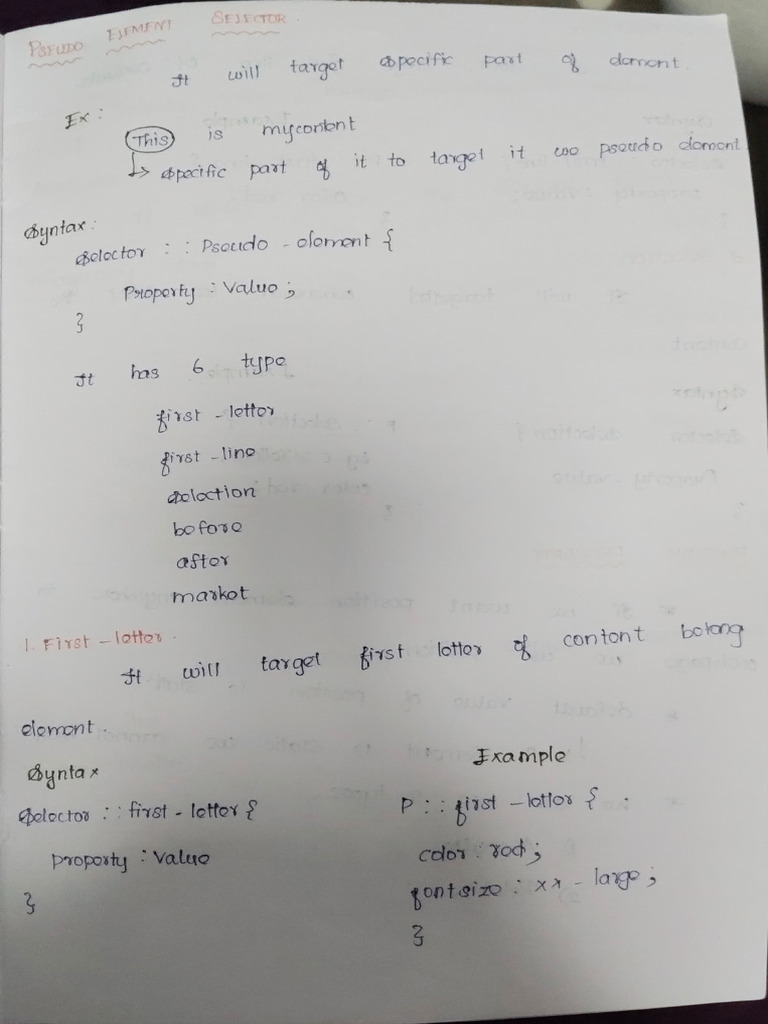 PSEUDO ELEMENT SELECTOR.
It will target specific part of element.
Ex:
This is mycontent
↳ specific part of it to target it use pseudo element
Syntax:
Selector : : Pseudo - element {
Property : Value ;
}
It has 6 type
first - letter
first - line
selection
before
after
market
1. First - letter.
It will target first letter of content belong
element.
Syntax
Selector : : first - letter {
property : Value
}
Example
P : : first - letter {
color : red ;
fontsize : xx - large ;
}